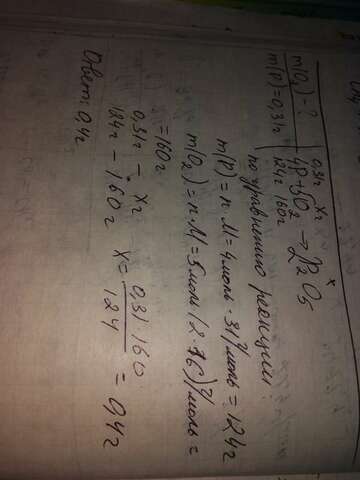 m(O₂) - ?
m(P) = 0,31г
0,31г xг
4P + 5O₂ → 2P₂O₅
124г 160г
по уравнению реакции:
m(P) = n·M = 4моль · 31 г/моль = 124г
m(O₂) = n·M = 5моль (2·16) г/моль =
= 160г
0,31г – xг
124г – 160г x = 0,31·160 / 124 = 0,4г
Ответ: 0,4г